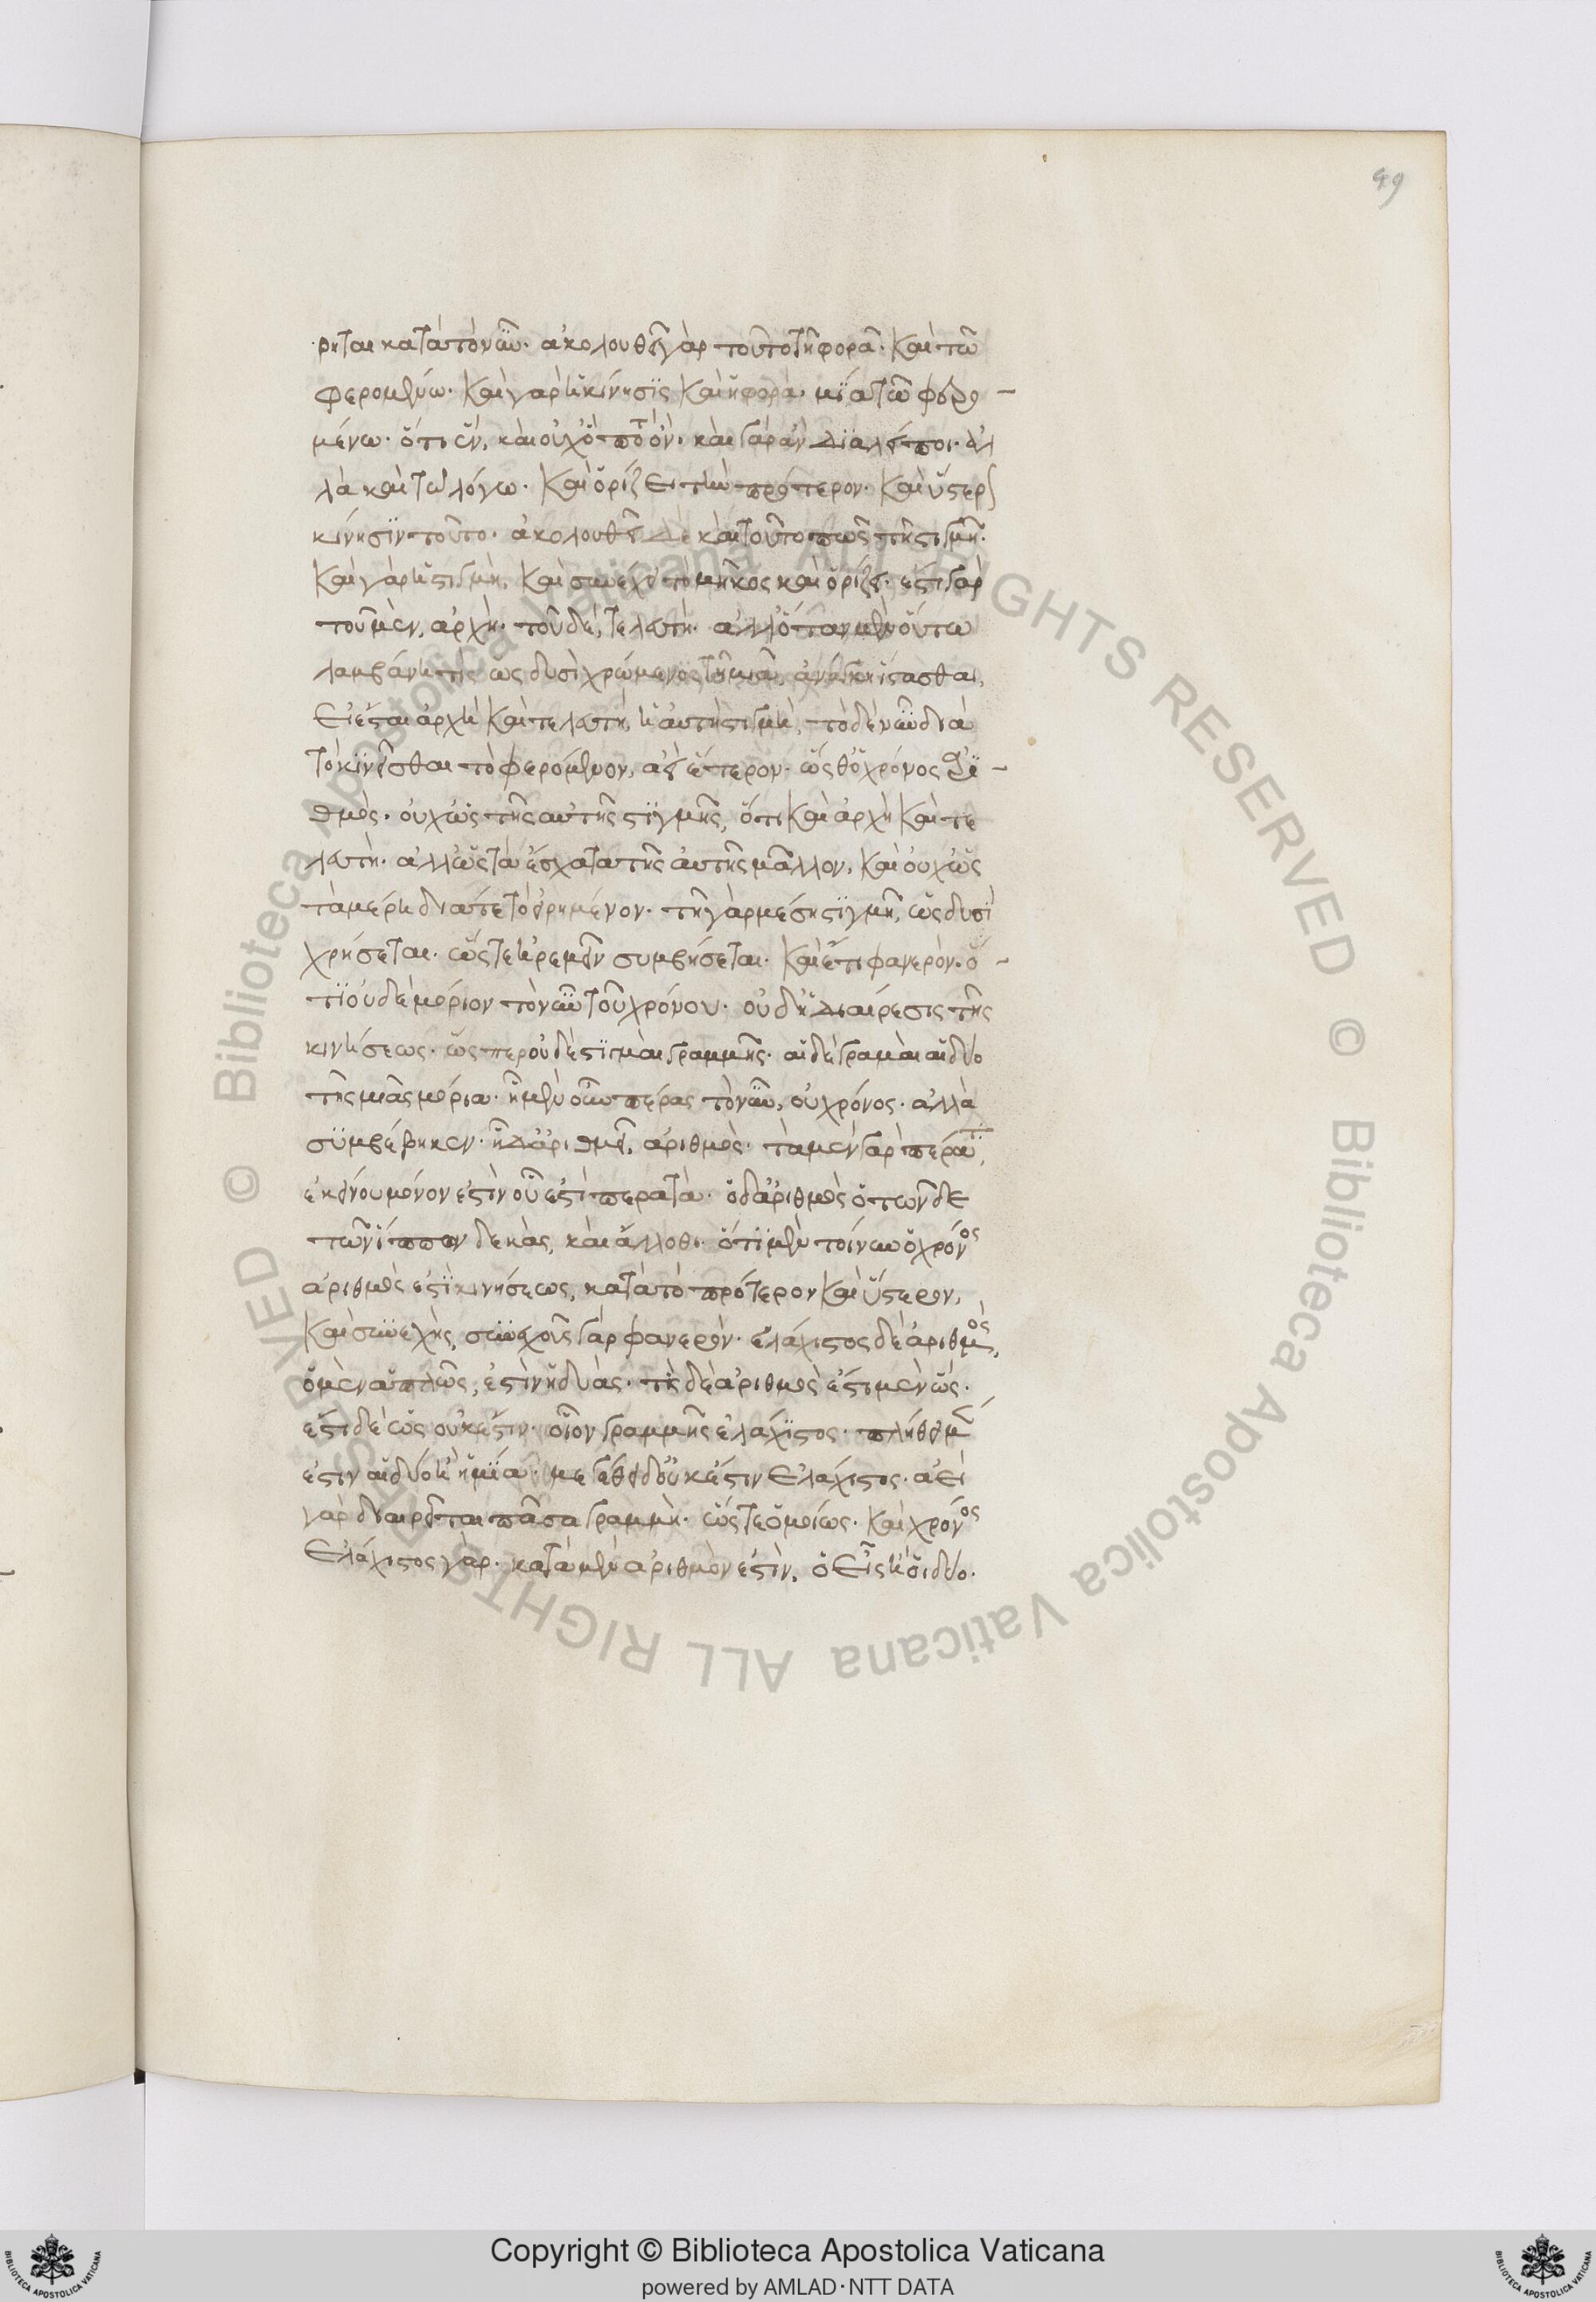 49
ρηται κατὰ τὸ νῦν· ἀκολουθεῖ γὰρ τοῦτο τῆ φορᾶ· καὶ τῶ
φερομένω· καὶ γὰρ ἡ κίνησϊς καὶ ἡ φορὰ· μϊα τῶ φερο –
μένω· ὅτι ἓν, καὶ οὐχ ὅ ποτ' ὂν· καὶ γὰρ ἂν διαλείποι· ἀλ
λὰ καὶ τῶ λόγω· καὶ ὁρίζει τὴν πρότερον· καὶ ὕστερον
κίνησϊν τοῦτο· ἀκολουθεῖ δὲ καὶ τοῦτο πως τῆ στιγμῆ·
καὶ γὰρ ἡ στιγμὴ, καὶ συνέχει τὸ μῆκος καὶ ὁρίζει· ἔστι γὰρ
τοῦ μὲν, ἀρχὴ· τοῦ δὲ, τελευτὴ· ἀλλ' ὅταν μὲν οὕτω
λαμβάνη τίς ὡς δυσὶ χρώμενος τῆ μιᾶ, ἀνάγκη ἵστασθαι,
εἰ ἔσται ἀρχὴ καὶ τελευτὴ, ἡ αὐτὴ στιγμὴ, τὸ δὲ νῦν διὰ
τὸ κϊνεῖσθαι τὸ φερόμενον, ἀεὶ ἕτερον· ὥσθ' ὁ χρόνος ἀρϊ –
θμὸς· οὐχ ὡς τῆς αὐτῆς στϊγμῆς, ὅτι καὶ ἀρχὴ καὶ τε
λευτὴ· ἀλλ' ὡς τὰ ἔσχατα τῆς αὐτῆς μᾶλλον, καὶ οὐχ ὡς
τὰ μέρη διά τε τὸ εἰρημένον· τῆ γὰρ μέση στϊγμῆ, ὡς δυσὶ
χρήσεται· ὥστε ἠρεμεῖν συμβήσεται· καὶ ἔτι φανερὸν· ὅ –
τϊ οὐδὲ μόριον τὸ νῦν τοῦ χρόνου· οὐδ' ἡ διαίρεσις τῆς
κινήσεως· ὥσπερ οὐδὲ στϊγμαὶ γραμμῆς· αἱ δὲ γραμαὶ αἱ δύο
τῆς μιᾶς μόρια· ἧ μὲν οὖν πέρας τὸ νῦν, οὐ χρόνος· ἀλλὰ
σϋμβέβηκεν· ἧ δ' ἀριθμεῖ, ἀριθμὸς· τὰ μὲν γὰρ πέρατα,
ἐκείνου μόνον ἐστὶν οὗ ἐστὶ πέρατα· ὁ δ' ἀριθμὸς ὁ τῶνδε
τῶν ἵππων δεκὰς, καὶ ἄλλοθι· ὅτϊ μὲν τοίνυν ὁ χρόνος
ἀριθμὸς ἐστϊ κινήσεως, κατὰ τὸ πρότερον καὶ ὕστερον,
καὶ συνεχὴς, συνεχοῦς γὰρ φανερὸν· ἐλάχιστος δὲ ἀριθμὸς,
ὁ μὲν ἁπλῶς, ἐστὶν ἡ δυὰς· τὶς δὲ ἀριθμὸς ἔστι μὲν ὡς·
ἔστι δὲ ὡς οὐκ ἔστιν· οἷον γραμμῆς ἐλάχϊστος· πλήθει μὲν
ἐστιν αἱ δύο ἢ ἡ μϊα· μεγέθει δ' οὐκ ἔστιν ἐλάχιστος· ἀεὶ
γὰρ διαιρεῖται πᾶσα γραμμὴ· ὥστε ὁμοίως· καὶ χρόνος
ἐλάχιστος γὰρ· κατὰ μὲν ἀριθμὸν ἐστὶν, ὁ εἷς ἢ οἱ δύο·
Copyright © Biblioteca Apostolica Vaticana
powered by AMLAD·NTT DATA